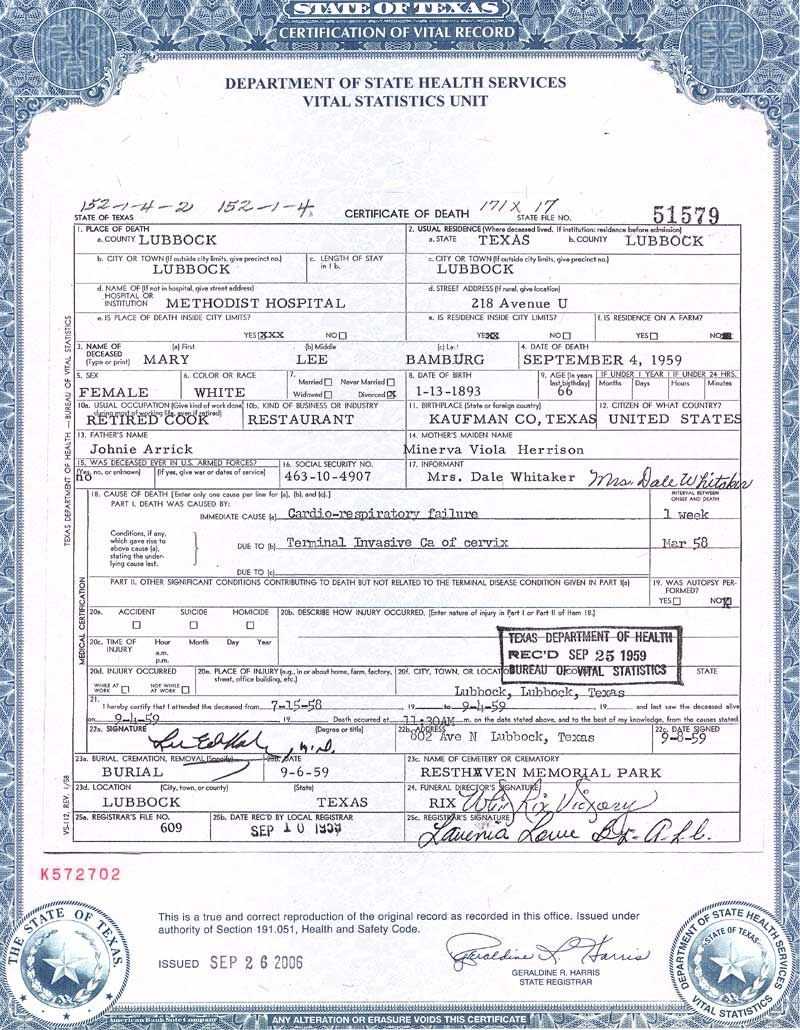 STATE OF TEXAS
CERTIFICATION OF VITAL RECORD
DEPARTMENT OF STATE HEALTH SERVICES
VITAL STATISTICS UNIT
152-1-4-2 152-1-4 171X 17
STATE OF TEXAS CERTIFICATE OF DEATH STATE FILE NO. 51579
1. PLACE OF DEATH 2. USUAL RESIDENCE (Where deceased lived. If institution: residence before admission)
a. COUNTY LUBBOCK a. STATE TEXAS b. COUNTY LUBBOCK
b. CITY OR TOWN (If outside city limits, give precinct no.) c. LENGTH OF STAY in 1 b. c. CITY OR TOWN (If outside city limits, give precinct no.)
LUBBOCK LUBBOCK
d. NAME OF (If not in hospital, give street address) d. STREET ADDRESS (If rural, give location)
HOSPITAL OR INSTITUTION METHODIST HOSPITAL 218 Avenue U
e. IS PLACE OF DEATH INSIDE CITY LIMITS? e. IS RESIDENCE INSIDE CITY LIMITS? f. IS RESIDENCE ON A FARM?
YES XXX NO YES XX NO YES NO
3. NAME OF DECEASED (Type or print) (a) First (b) Middle (c) Last 4. DATE OF DEATH
MARY LEE BAMBURG SEPTEMBER 4, 1959
5. SEX 6. COLOR OR RACE 7. Married Never Married Widowed Divorced X 8. DATE OF BIRTH 9. AGE (In years last birthday) IF UNDER 1 YEAR IF UNDER 24 HRS.
Months Days Hours Minutes
FEMALE WHITE 1-13-1893 66
10a. USUAL OCCUPATION (Give kind of work done during most of working life, even if retired) 10b. KIND OF BUSINESS OR INDUSTRY 11. BIRTHPLACE (State or foreign country) 12. CITIZEN OF WHAT COUNTRY?
RETIRED COOK RESTAURANT KAUFMAN CO, TEXAS UNITED STATES
13. FATHER'S NAME 14. MOTHER'S MAIDEN NAME
Johnie Arrick Minerva Viola Herrison
15. WAS DECEASED EVER IN U.S. ARMED FORCES? 16. SOCIAL SECURITY NO. 17. INFORMANT
(Yes, no, or unknown) (If yes, give war or dates of service)
no 463-10-4907 Mrs. Dale Whitaker Mrs. Dale Whitaker
18. CAUSE OF DEATH [Enter only one cause per line for (a), (b), and (c).] INTERVAL BETWEEN ONSET AND DEATH
PART I. DEATH WAS CAUSED BY:
IMMEDIATE CAUSE (a) Cardio-respiratory failure 1 week
Conditions, if any, which gave rise to above cause (a), stating the underlying cause last.
DUE TO (b) Terminal Invasive Ca of cervix Mar 58
DUE TO (c)
PART II. OTHER SIGNIFICANT CONDITIONS CONTRIBUTING TO DEATH BUT NOT RELATED TO THE TERMINAL DISEASE CONDITION GIVEN IN PART I(a) 19. WAS AUTOPSY PERFORMED?
YES NO X
20a. ACCIDENT SUICIDE HOMICIDE 20b. DESCRIBE HOW INJURY OCCURRED. (Enter nature of injury in Part I or Part II of Item 18.)
20c. TIME OF INJURY Hour Month Day Year
a.m.
p.m.
TEXAS DEPARTMENT OF HEALTH
REC'D SEP 25 1959
BUREAU OF VITAL STATISTICS
20d. INJURY OCCURRED 20e. PLACE OF INJURY (e.g., in or about home, farm, factory, street, office building, etc.) 20f. CITY, TOWN, OR LOCATION COUNTY STATE
WHILE AT WORK NOT WHILE AT WORK Lubbock, Lubbock, Texas
21. I hereby certify that I attended the deceased from 7-15-58 19 to 9-4-59 19 and last saw the deceased alive
on 9-4-59 19 Death occurred at 11:30AM m. on the date stated above, and to the best of my knowledge, from the causes stated.
22a. SIGNATURE (Degree or title) 22b. ADDRESS 22c. DATE SIGNED
M.D. 802 Ave N Lubbock, Texas 9-8-59
23a. BURIAL, CREMATION, REMOVAL (Specify) 23b. DATE 23c. NAME OF CEMETERY OR CREMATORY
BURIAL 9-6-59 RESTHAVEN MEMORIAL PARK
23d. LOCATION (City, town, or county) (State) 24. FUNERAL DIRECTOR'S SIGNATURE
LUBBOCK TEXAS RIX
25a. REGISTRAR'S FILE NO. 25b. DATE REC'D BY LOCAL REGISTRAR 25c. REGISTRAR'S SIGNATURE
609 SEP 10 1959 Lavenia Lowe
TEXAS DEPARTMENT OF HEALTH — BUREAU OF VITAL STATISTICS
MEDICAL CERTIFICATION
VS-112, REV. 1/58
K572702
This is a true and correct reproduction of the original record as recorded in this office. Issued under
authority of Section 191.051, Health and Safety Code.
ISSUED SEP 26 2006
Geraldine R. Harris
GERALDINE R. HARRIS
STATE REGISTRAR
THE STATE OF TEXAS
DEPARTMENT OF STATE HEALTH SERVICES
STATE OF TEXAS
VITAL STATISTICS
American Bank Note Company
ANY ALTERATION OR ERASURE VOIDS THIS CERTIFICATE